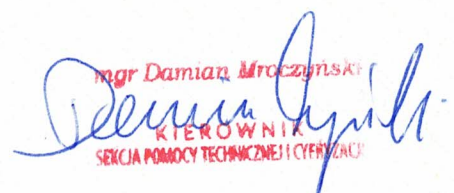 mgr Damian Mroczyński
KIEROWNIK
SEKCJA POMOCY TECHNICZNEJ I CYFRYZACJI